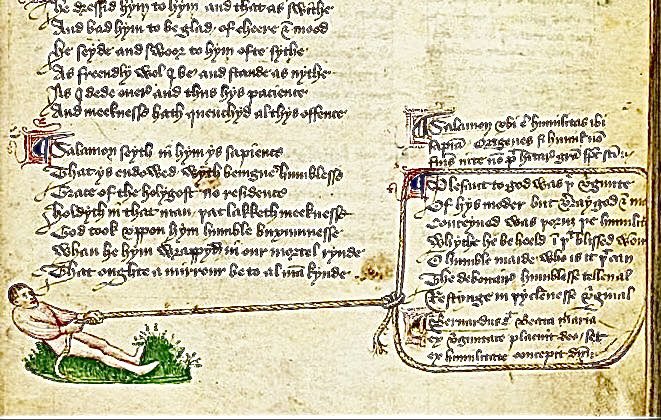 he dressid hym to hym and that as swithe
And bad hym to be glad of cheere & mood
he seyde and swoor to hym ofte sythe
As freendly wol I be and stande as nythe
As I dede over and thus hys pacience
And meeknesse hath qwenchyd al thys offence
Salamon seyth in hym ys sapience
That ys endowed wyth benigne humblesse
Grace of the holy gost no residence
holdyth in that man þat lakketh meeknesse
God took uppon hym humble buxumnesse
Whan he hym wrappyd in our mortel rynde
That oughte a mirrour be to al man kynde
Salamon ubi est humilitas ibi
sapia Origenes si humil no
Plesaut to god was þe virginite
Of hys moder but verray god & m
Conceyved was porw þe humilit
Whych he beheeld in þt blessed wom
O humble maide who is it þt can
The debonaire humblesse telle
Restynge in þy clennesse virginal
Bernardus et Beata maria
ex virginitate placuit deo set
ex humilitate concepit